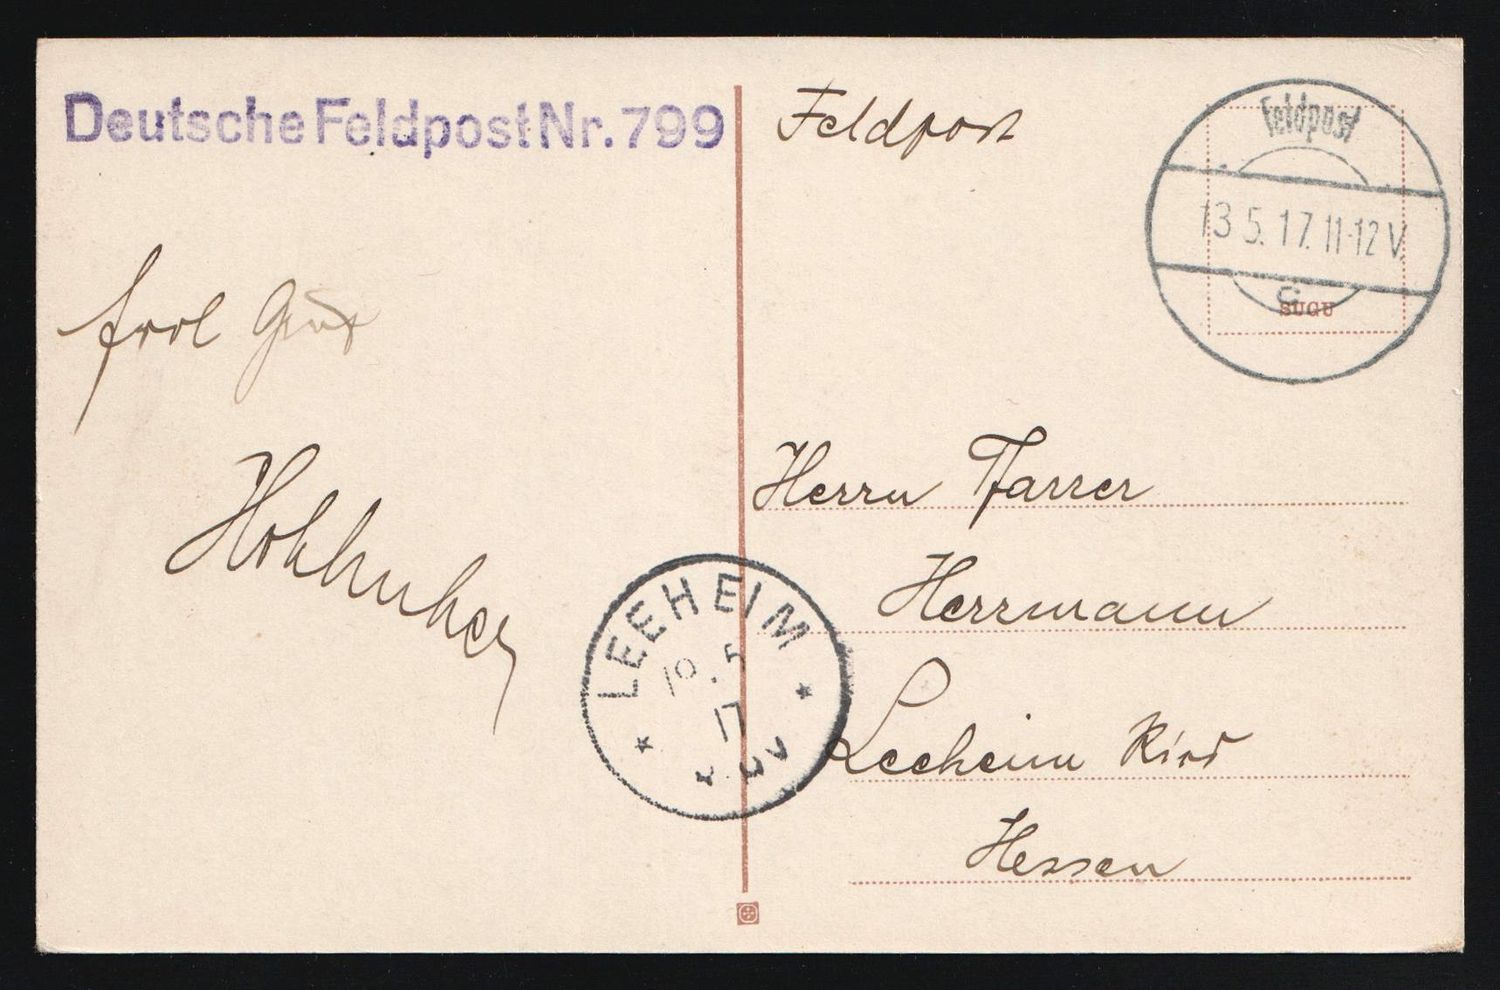 Deutsche Feldpost Nr. 799
Feldpost
Feldpost
13 5. 17. 11-12 V.
c
SUGU
Herrn Pfarrer
Herrmann
Leeheim Ried
Hessen
LEEHEIM
19. 5
17